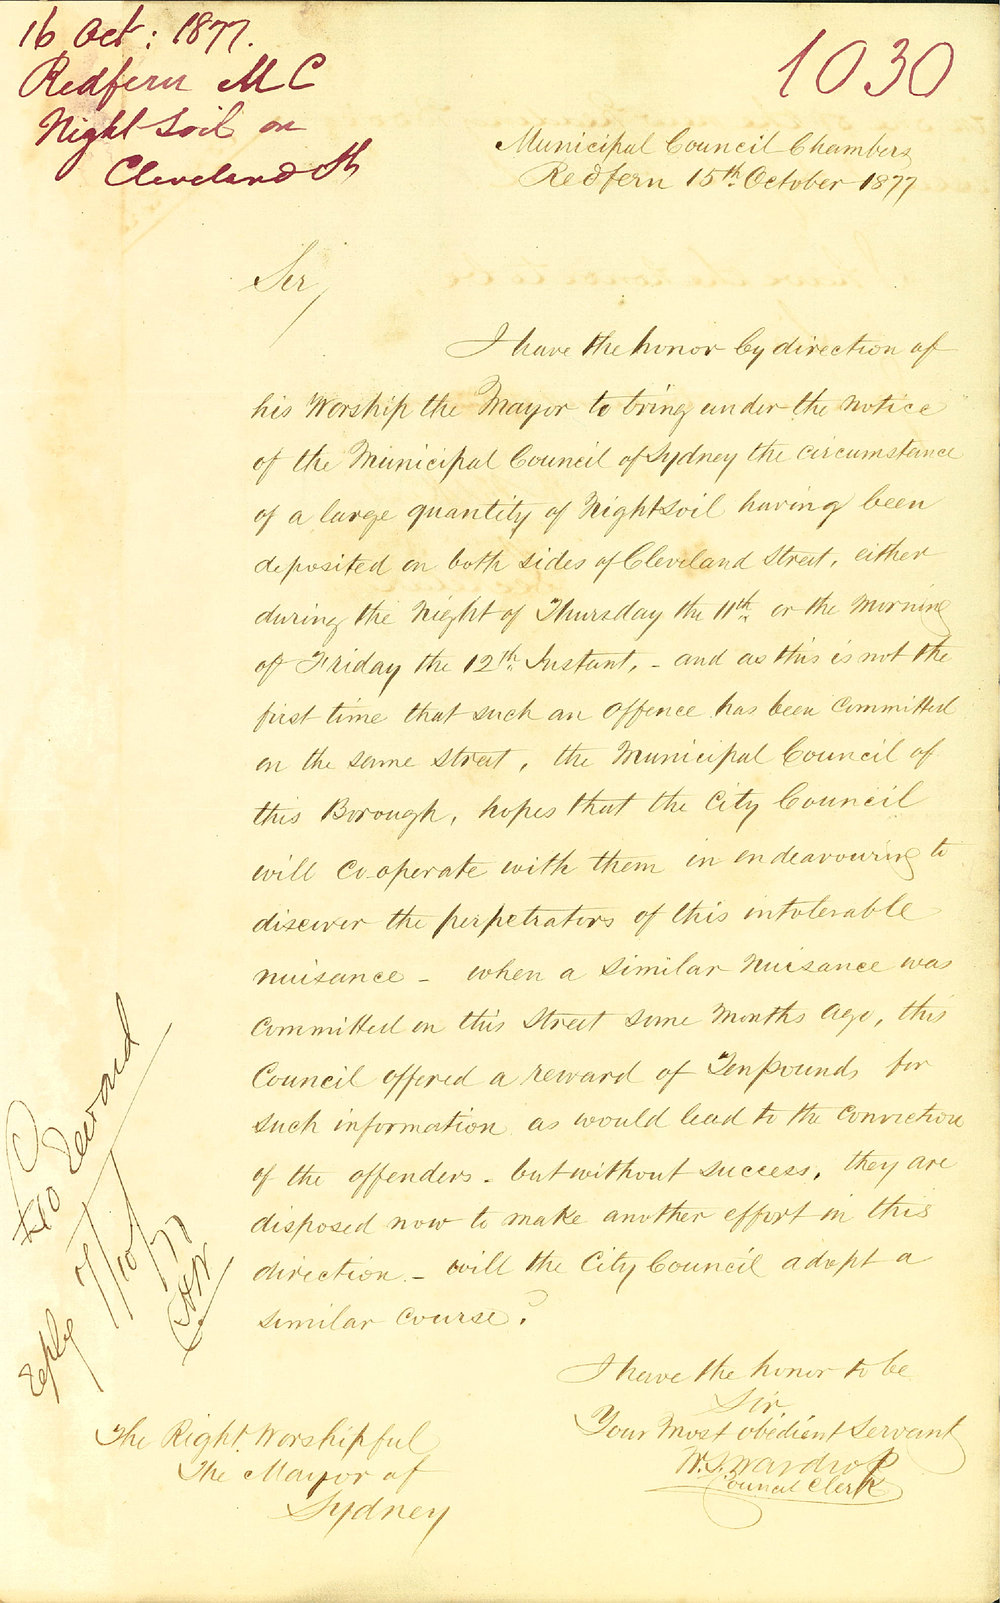 16 Oct: 1877.
Redfern M C
Night Soil on
Cleveland St
1030
Municipal Council Chambers
Redfern 15th October 1877
Sir,
I have the honor by direction of
his Worship the Mayor to bring under the notice
of the Municipal Council of Sydney the circumstance
of a large quantity of Nightsoil having been
deposited on both sides of Cleveland Street, either
during the Night of Thursday the 11th or the Morning
of Friday the 12th Instant, - and as this is not the
first time that such an offence has been committed
on the same street, the Municipal Council of
this Borough, hopes that the City Council
will co-operate with them in endeavouring to
discover the perpetrators of this intolerable
nuisance - when a similar Nuisance was
committed on this Street some Months ago, this
Council offered a reward of Ten pounds for
such information as would lead to the conviction
of the offenders - but without success, they are
disposed now to make another effort in this
direction. - will the City Council adopt a
similar course?
I have the honor to be
Sir,
Your Most obedient Servant
W. J. Wardrop
Council Clerk
The Right Worshipful
The Mayor of
Sydney
£10 Reward
Reply 17/10/77